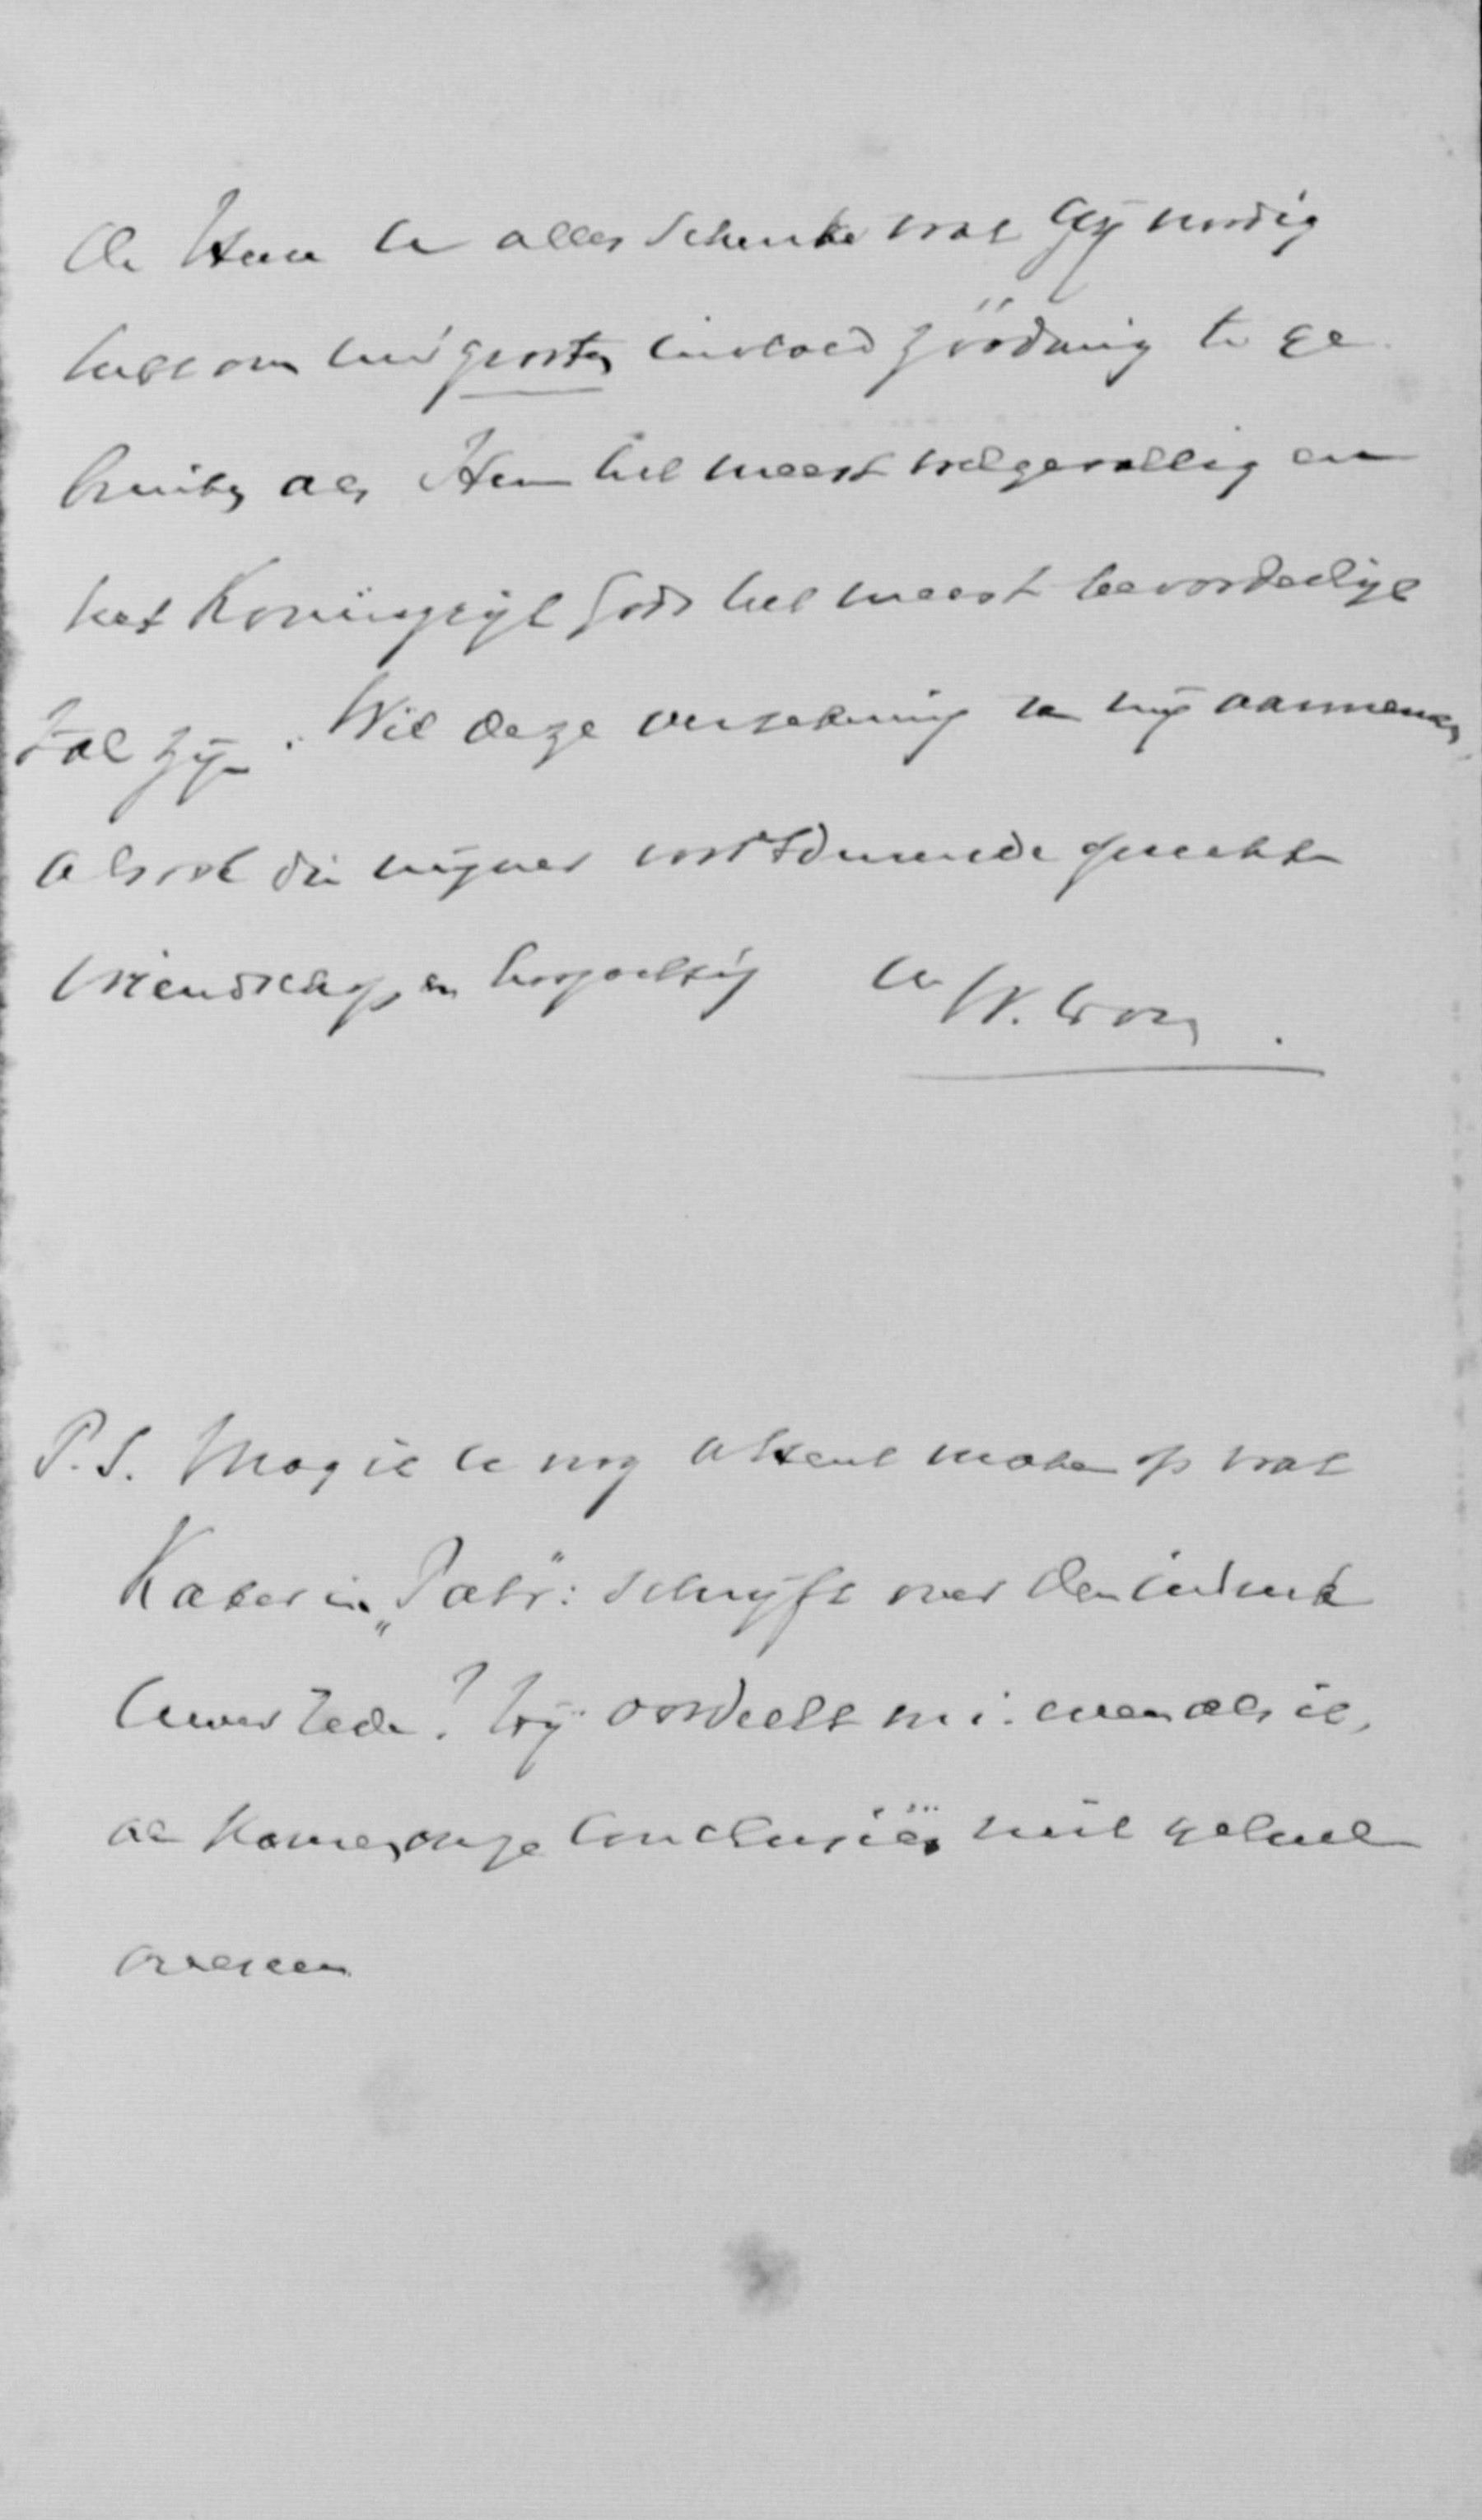 De Heer U alles schenke wat Gij noodig
hebt om Uw grooten invloed zóódanig te ge
bruiken als Hem het meest welgevallig en
het Koningrijk Gods het meest bevorderlijk
zal zijn. Wil deze verzekering van mij aannemen
alsook die mijner voortdurende gehechte
vriendschap en hoogachting
P.S. Mag ik U nog attent maken op wat
Kater in "Patr": schrijft over den indruk
Uwer rede? Hij oordeelt m.i. even als ik,
al komen onze conclusiën niet geheel
overeen